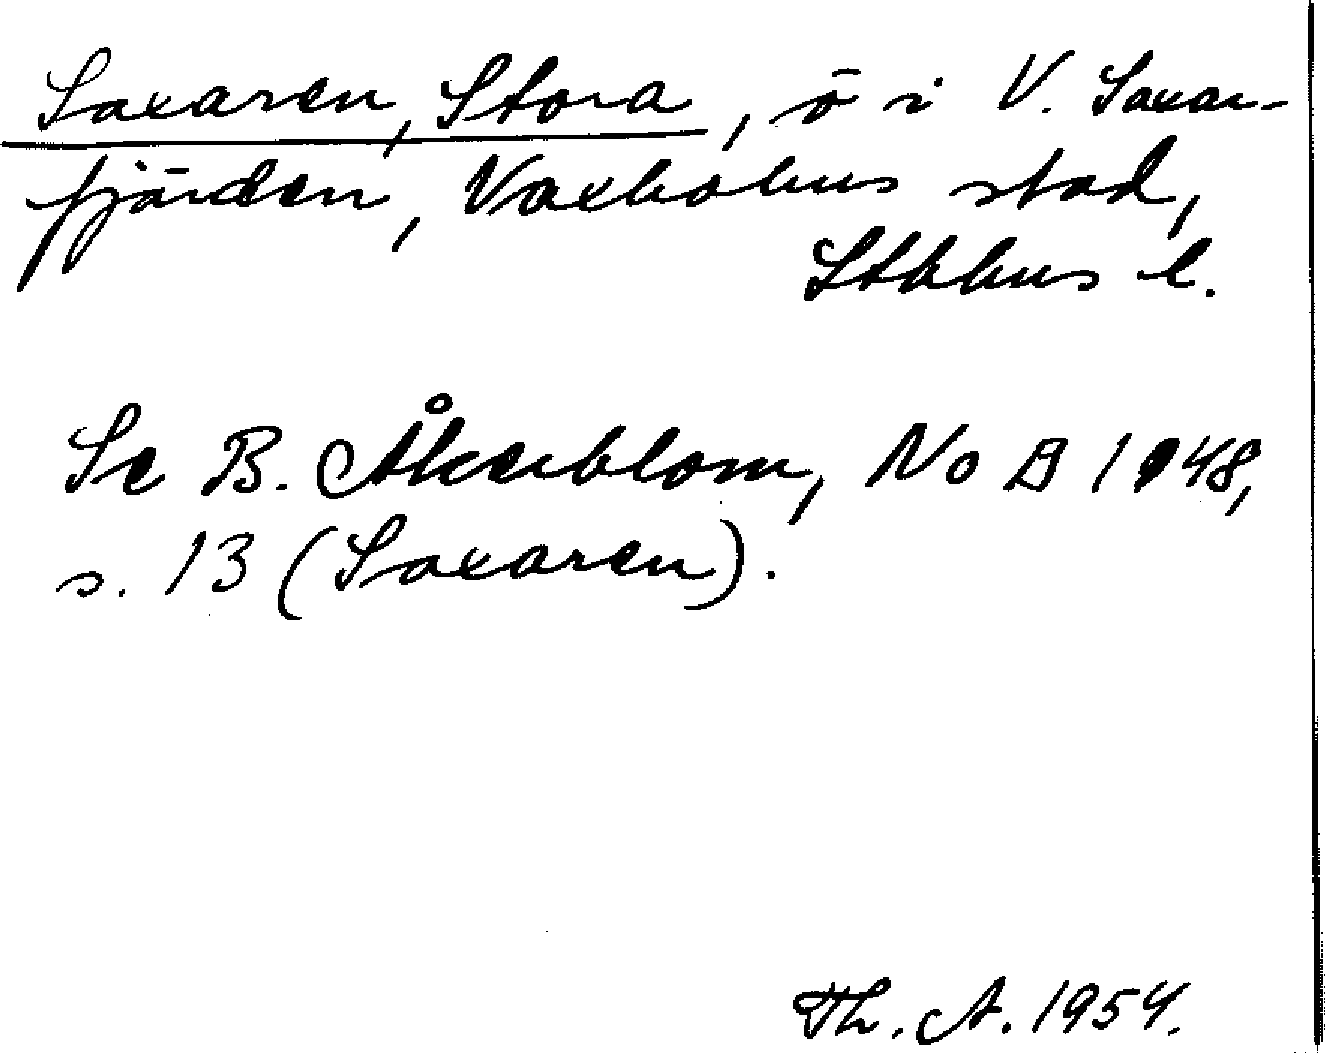 Saxaren, Stora, ö i V. Saxar-
fjärden, Vaxholms stad,
Sthlms l.
Se B. Åkerblom, NoB 1948,
s. 13 (Saxaren).
Th. A. 1954.